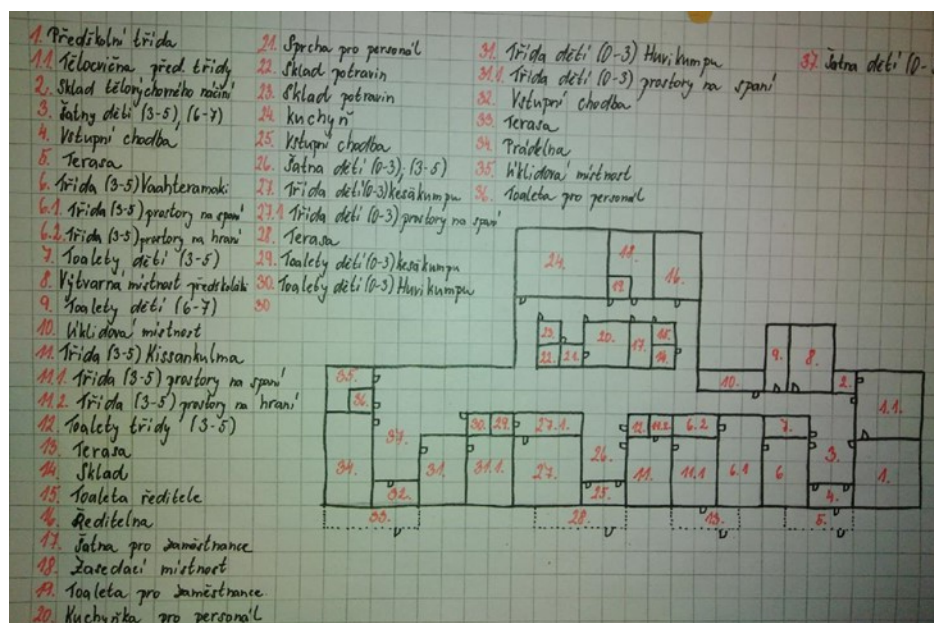 1. Předškolní třída
1.1. Tělocvična před. třídy
2. Sklad tělovýchovného náčiní
3. Šatny dětí (3-5), (6-7)
4. Vstupní chodba
5. Terasa
6. Třída (3-5) Vaahteramäki
6.1. Třída (3-5) prostory na spaní
6.2. Třída (3-5) prostory na hraní
7. Toalety dětí (3-5)
8. Výtvarná místnost předškoláci
9. Toalety dětí (6-7)
10. Úklidová místnost
11. Třída (3-5) Kissankulma
11.1. Třída (3-5) prostory na spaní
11.2. Třída (3-5) prostory na hraní
12. Toalety třídy (3-5)
13. Terasa
14. Sklad
15. Toaleta ředitele
16. Ředitelna
17. Šatna pro zaměstnance
18. Zasedací místnost
19. Toaleta pro zaměstnance
20. Kuchyňka pro personál
21. Sprcha pro personál
22. Sklad potravin
23. Sklad potravin
24. kuchyň
25. Vstupní chodba
26. Šatna dětí (0-3), (3-5)
27. Třída dětí (0-3) kesäkumpu
27.1 Třída dětí (0-3) prostory na spaní
28. Terasa
29. Toalety dětí (0-3) kesäkumpu
30. Toalety dětí (0-3) Huvikumpu
30
31. Třída dětí (0-3) Huvikumpu
31.1. Třída dětí (0-3) prostory na spaní
32. Vstupní chodba
33. Terasa
34. Prádelna
35. Úklidová místnost
36. Toaleta pro personál
37. Šatna dětí (0-
24. 18. 19. 16.
23. 20. 17. 15.
22. 21. 14.
9. 8. 10. 2. 1.1.
35. 36. 37. 34. 32. 31.
30. 29. 27.1. 31.1. 27. 26. 25.
12. 11.2. 6.2 7. 11. 11.1 6.1 6 3. 4. 1.
33. 28. 13. 5.